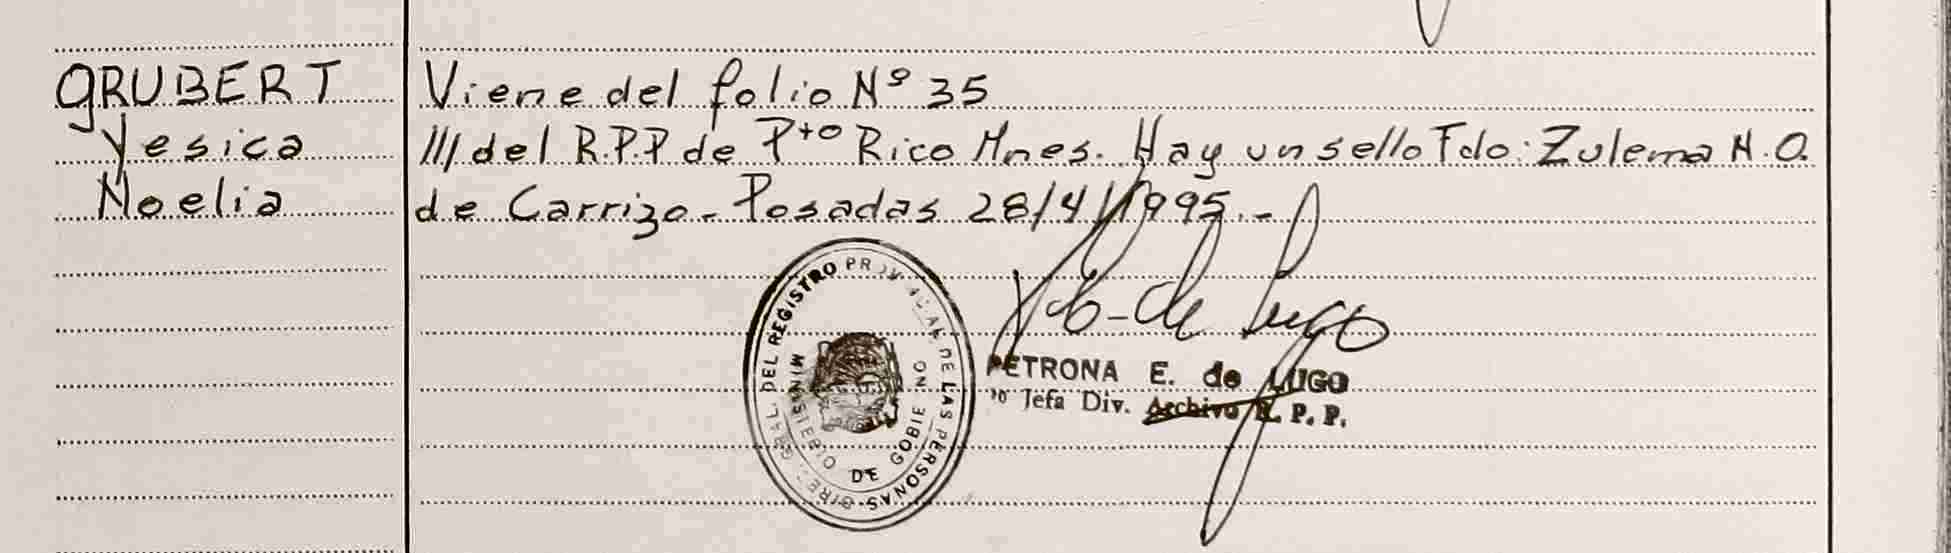 GRUBERT
Yesica
Noelia
Viene del folio Nº 35
/// del R.P.P de Pto Rico Mnes. Hay un sello Fdo: Zulema N.O.
de Carrizo - Posadas 28/4/1995.-
DEL REGISTRO PROVINCIAL DE LAS PERSONAS
MINISTERIO DE GOBIERNO
de Lugo
PETRONA E. de LUGO
Jefa Div. Archivo R. P. P.